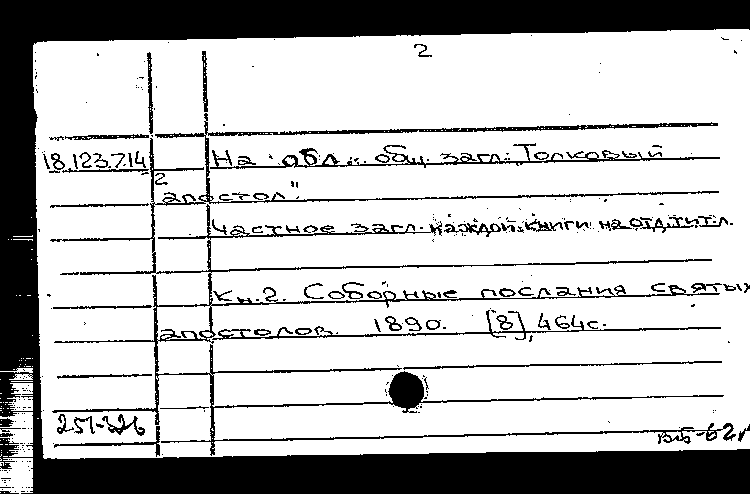 2
18.123.714 На обл. общ. загл.: „Толковый
2
апостол".
Частное загл. каждой книги на отд. тит. л.
Кн. 2. Соборные послания святых
апостолов. 1890. [8], 464с.
251-326